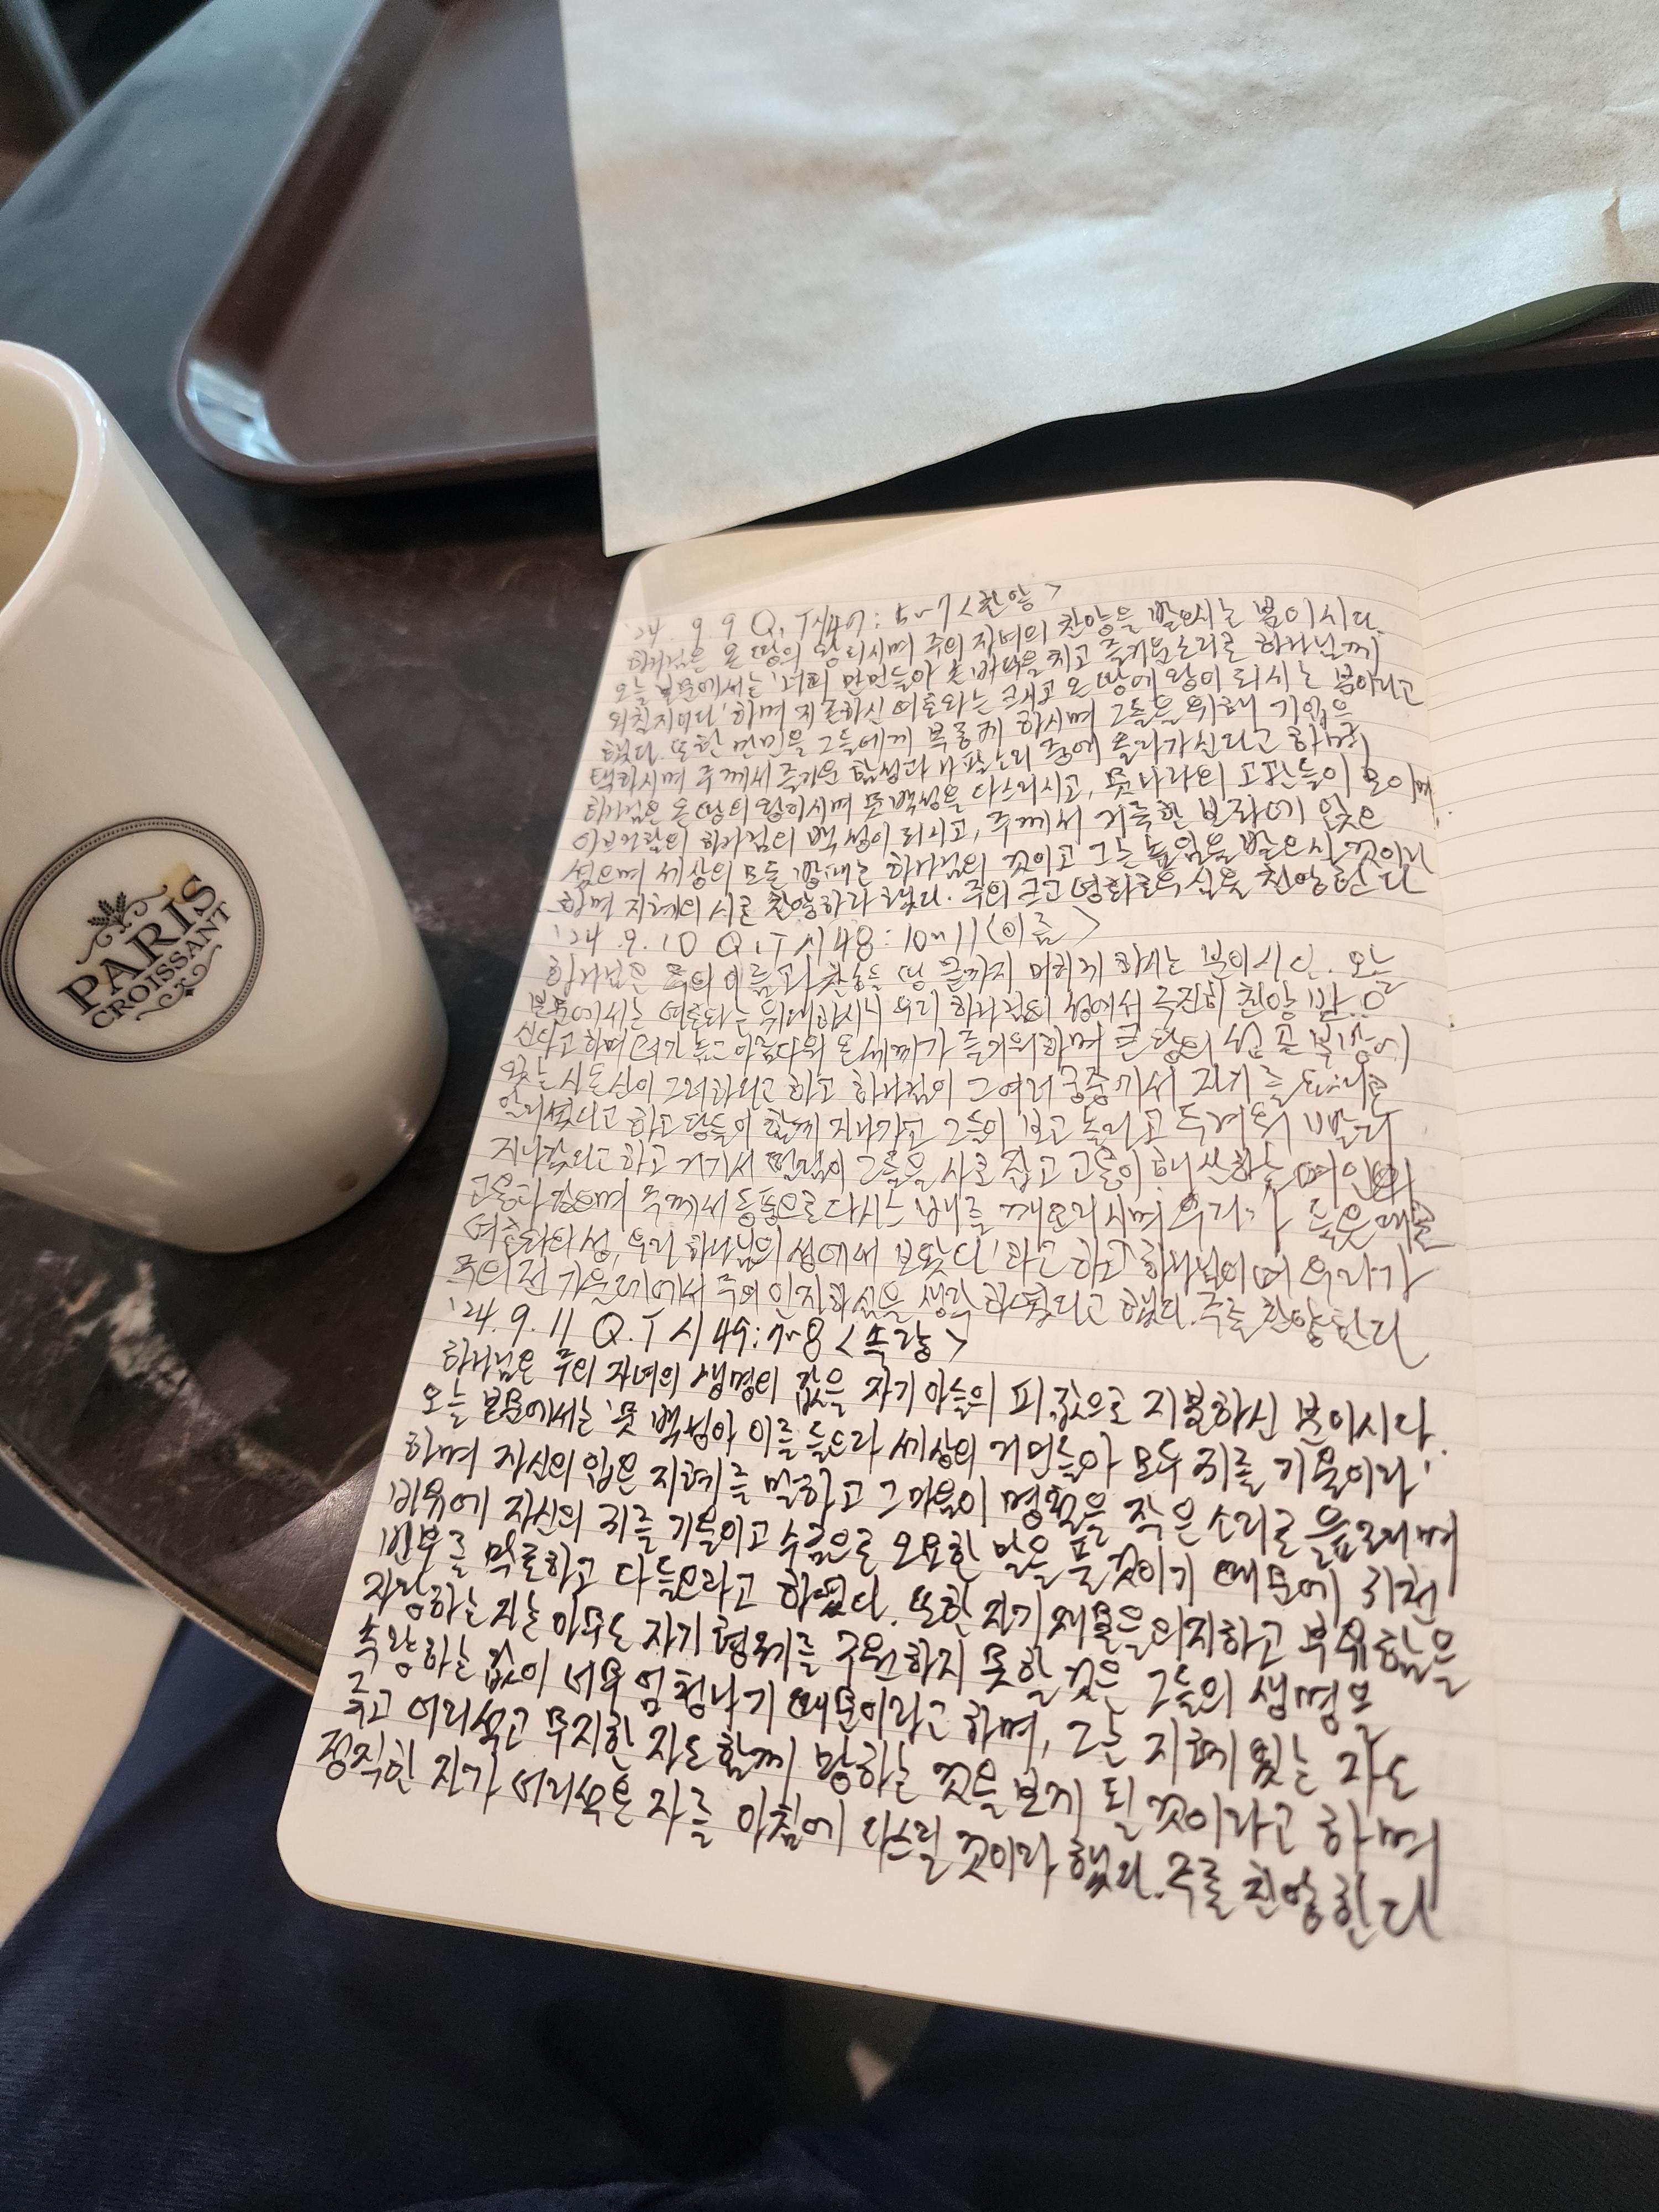 PARIS
CROISSANT
'24. 9. 9 Q.T 시47: 5~7 <찬양>
하나님은 온 땅의 왕 되시며 주의 자녀의 찬양을 받으시는 분이시다.
오늘 본문에서는 '너희 만민들아 손바닥을 치고 즐거운 소리로 하나님께
외칠지어다' 하며 지존하신 여호와는 크시고 온 땅에 왕이 되시는 분이라고
했다. 또한 만민을 그들에게 복종케 하시며 그들을 위해 기업을
택하시며 주께서 즐거운 함성과 나팔소리 중에 올라가신다고 하며
하나님은 온 땅의 왕이시며 뭇 백성을 다스리시고, 뭇 나라의 고관들이 모이며
아브라함의 하나님의 백성이 되시고, 주께서 거룩한 보좌에 앉은
셨으며 세상의 모든 방패는 하나님의 것이고 그는 높임을 받으실 것이라
하며 지혜의 시로 찬양하라 했다. 주의 크고 영화로우심을 찬양한다
'24. 9. 10 Q.T 시48: 10~11 <이름>
하나님은 주의 이름과 찬송을 땅 끝까지 미치게 하시는 분이시다. 오늘
본문에서는 여호와는 위대하시니 우리 하나님의 성에서 극진히 찬양 받으
신다고 하며 터가 높고 아름다워 온 세계가 즐거워하며 큰 왕의 성 곧 북방에
있는 시온산이 그러하다고 하고 하나님이 그 여러 궁중에서 자기를
알리셨다고 하고 왕들이 함께 지나가고 그들이 보고 놀라고 두려워 빨리
지나갔다고 하고 거기서 떨림이 그들을 사로잡고 고통이 해산하는 여인의
고통과 같으며 주께서 동풍으로 다시스 배를 깨뜨리시며 우리가 들은 대로
여호와의 성, 우리 하나님의 성에서 보았다'라고 하고 하나님이여 우리가
주의 전 가운데에서 주의 인자하심을 생각하였다고 했다. 주를 찬양한다
'24. 9. 11 Q.T 시49: 7~8 <속량>
하나님은 주의 자녀의 생명의 값을 자기 아들의 피값으로 지불하신 분이시다.
오늘 본문에서는 '뭇 백성아 이를 들으라 세상의 거민들아 모두 귀를 기울이라'
하며 자신의 입은 지혜를 말하고 그 마음이 명철을 작은 소리로 읊조리며
비유에 자신의 귀를 기울이고 수금으로 오묘한 말을 풀 것이기 때문에 귀천
빈부를 막론하고 다 들으라고 하였다. 또한 자기 재물을 의지하고 부유함을
자랑하는 자는 아무도 자기 형제를 구원하지 못할 것은 그들의 생명으
속량하는 값이 너무 엄청나기 때문이라고 하며, 그는 지혜 있는 자도
죽고 어리석고 무지한 자도 함께 망하는 것을 보게 될 것이라고 하며
정직한 자가 어리석은 자를 아침에 다스릴 것이라 했다. 주를 찬양한다